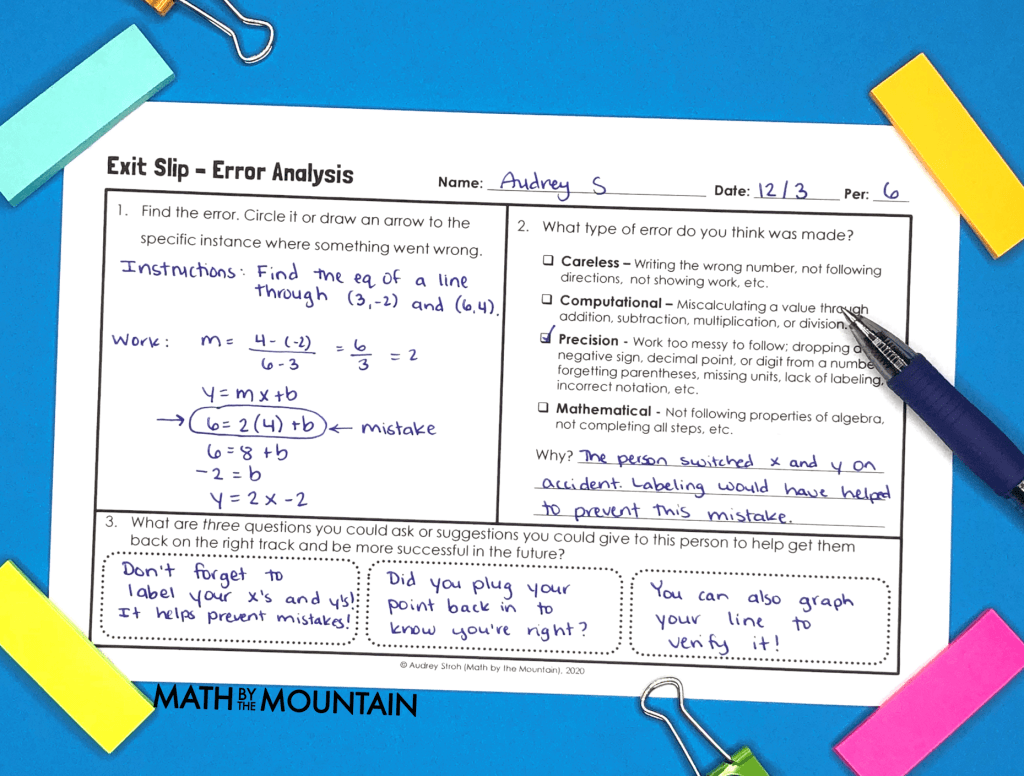 Exit Slip – Error Analysis
Name: Audrey S Date: 12/3 Per: 6
1. Find the error. Circle it or draw an arrow to the
specific instance where something went wrong.
Instructions: Find the eq of a line
through (3,-2) and (6,4).
Work: m = 4-(-2) / 6-3 = 6/3 = 2
y = mx+b
→ 6=2(4)+b ← mistake
6=8+b
-2=b
y=2x-2
2. What type of error do you think was made?
❑ Careless – Writing the wrong number, not following
directions, not showing work, etc.
❑ Computational – Miscalculating a value through
addition, subtraction, multiplication, or division.
☑ Precision - Work too messy to follow; dropping a
negative sign, decimal point, or digit from a numbe
forgetting parentheses, missing units, lack of labeling,
incorrect notation, etc.
❑ Mathematical - Not following properties of algebra,
not completing all steps, etc.
Why? The person switched x and y on
accident. Labeling would have helped
to prevent this mistake.
3. What are three questions you could ask or suggestions you could give to this person to help get them
back on the right track and be more successful in the future?
Don't forget to
label your x's and y's!
It helps prevent mistakes!
Did you plug your
point back in to
know you're right?
You can also graph
your line to
verify it!
© Audrey Stroh (Math by the Mountain), 2020
MATH BY THE MOUNTAIN